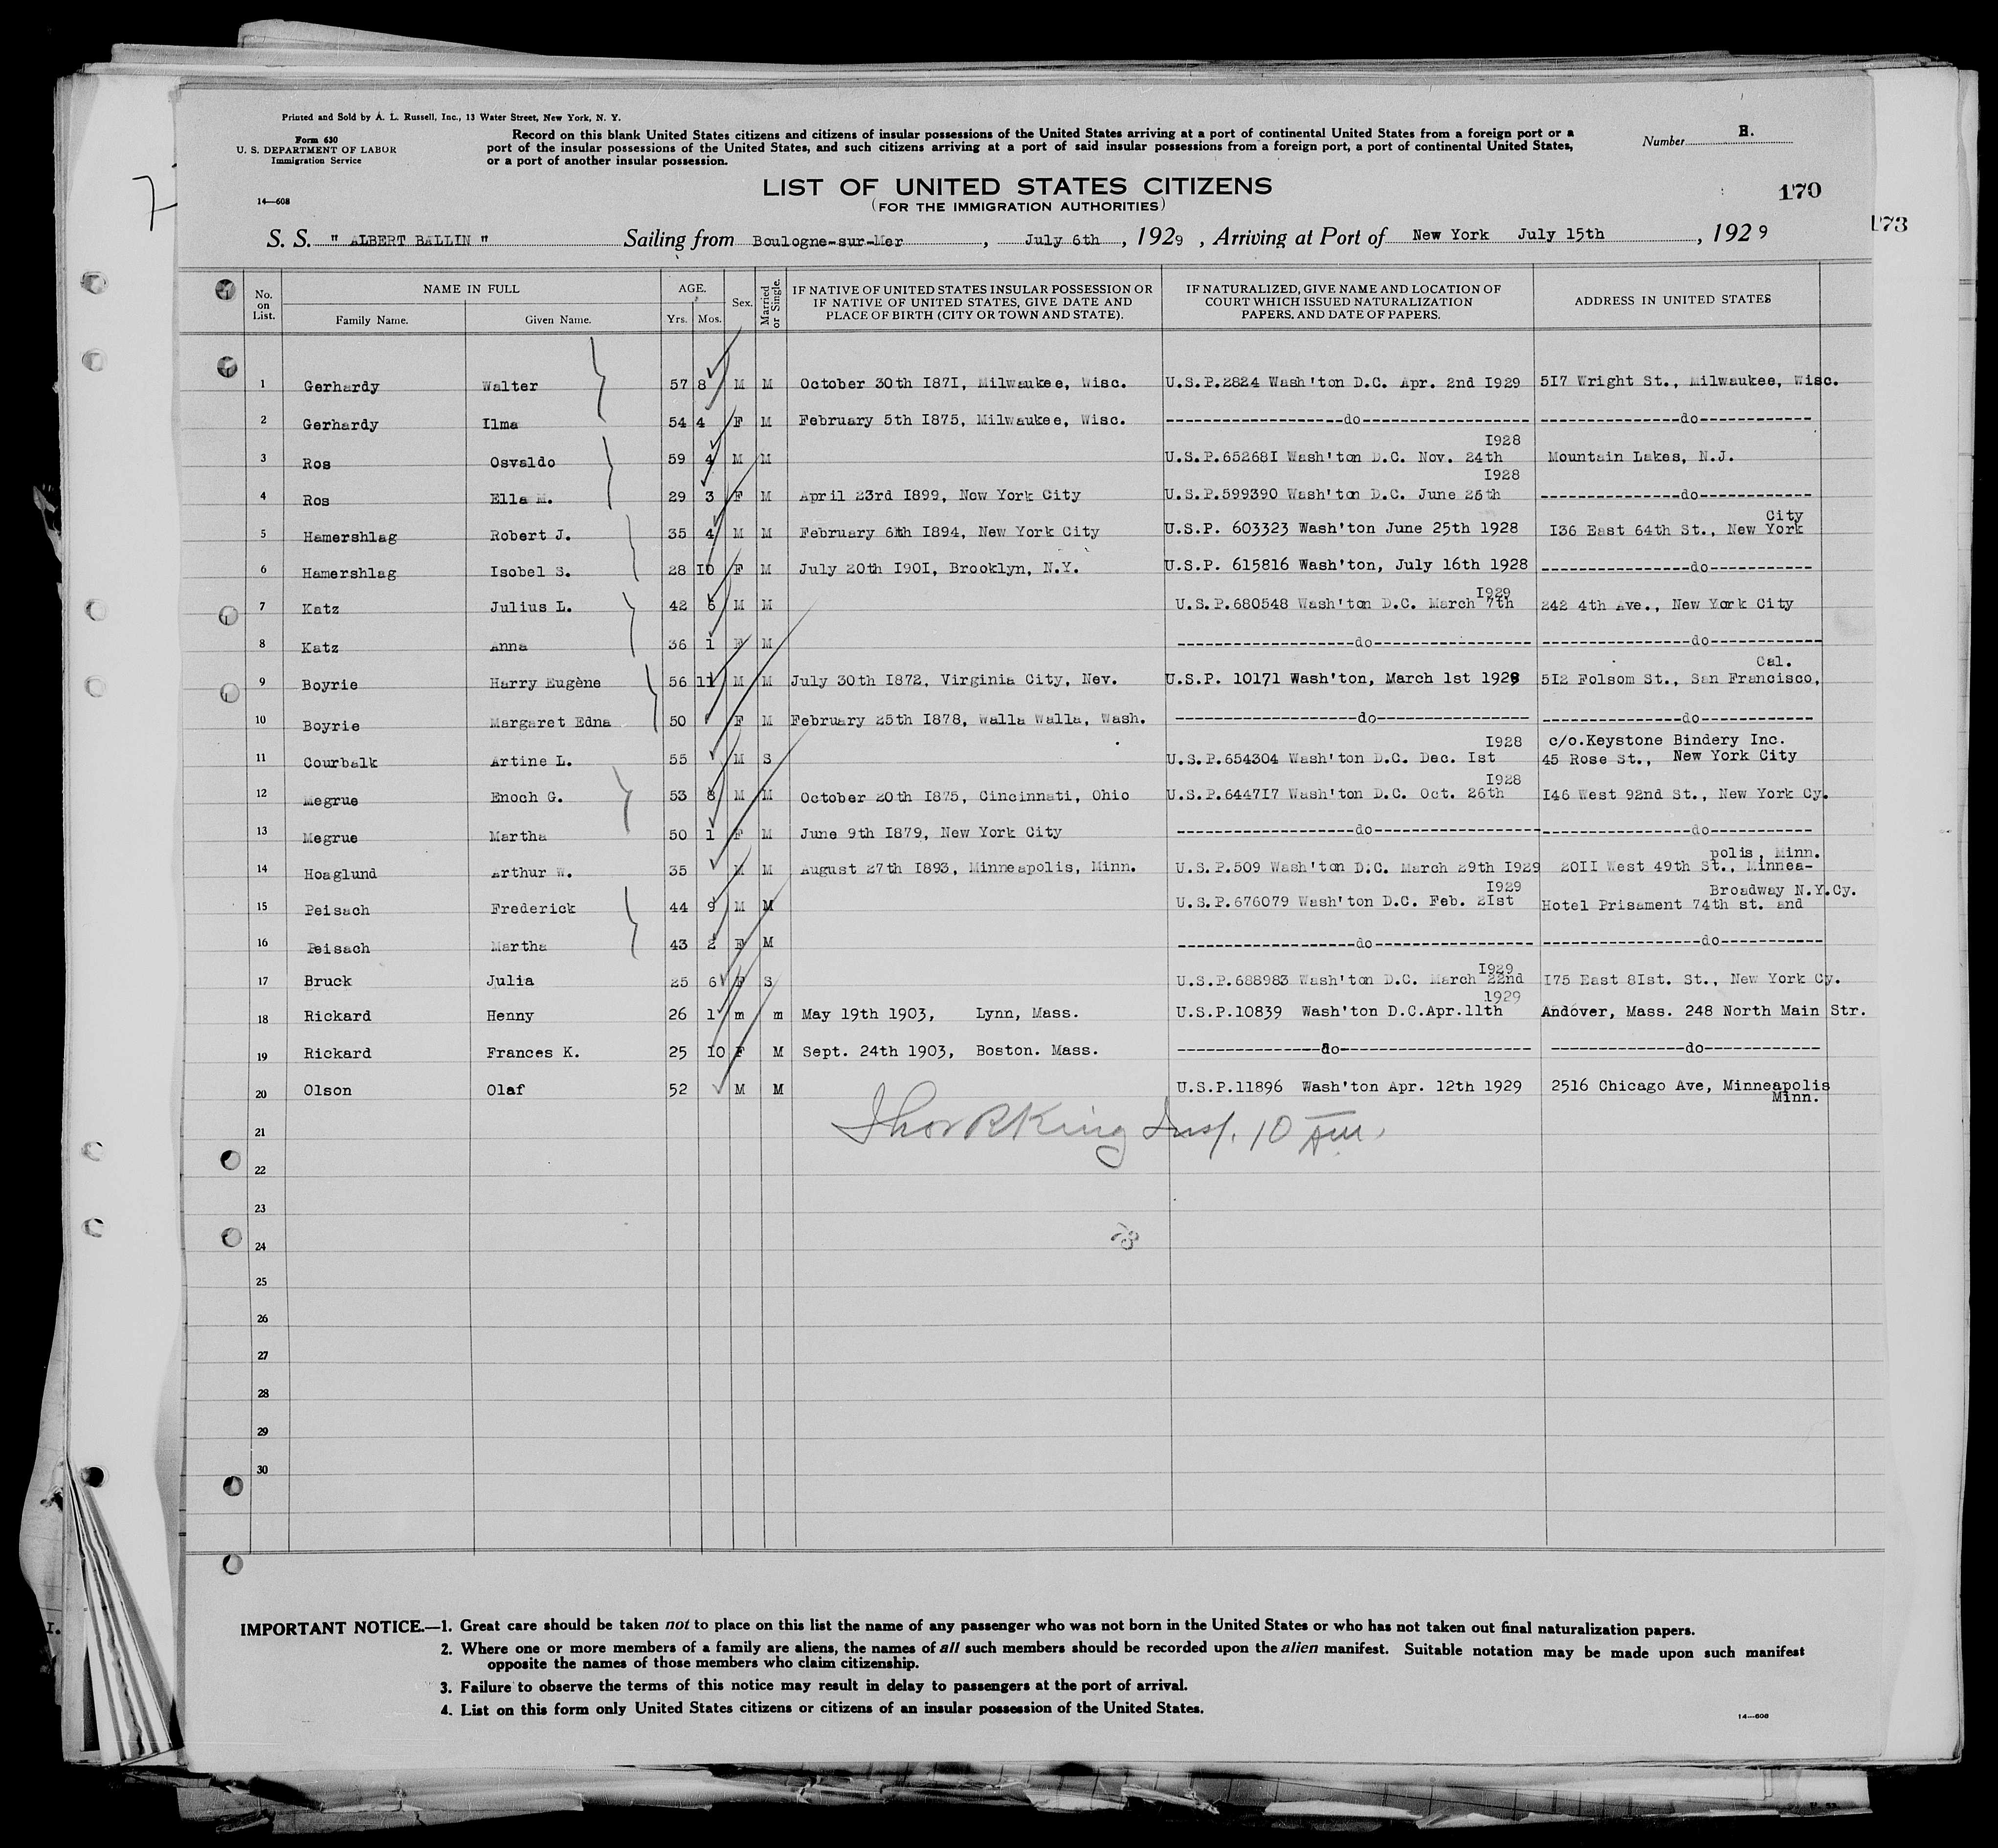 Printed and Sold by A. L. Russell, Inc., 13 Water Street, New York, N. Y.
Form 630
U. S. DEPARTMENT OF LABOR
Immigration Service
14—608
Record on this blank United States citizens and citizens of insular possessions of the United States arriving at a port of continental United States from a foreign port or a
port of the insular possessions of the United States, and such citizens arriving at a port of said insular possessions from a foreign port, a port of continental United States,
or a port of another insular possession.
Number H.
LIST OF UNITED STATES CITIZENS
(FOR THE IMMIGRATION AUTHORITIES)
170
173
7
S. S. " ALBERT BALLIN " Sailing from Boulogne-sur-Mer, July 6th, 1929, Arriving at Port of New York July 15th, 1929
No. on List. NAME IN FULL AGE. Sex. Married or Single. IF NATIVE OF UNITED STATES INSULAR POSSESSION OR IF NATIVE OF UNITED STATES, GIVE DATE AND PLACE OF BIRTH (CITY OR TOWN AND STATE). IF NATURALIZED, GIVE NAME AND LOCATION OF COURT WHICH ISSUED NATURALIZATION PAPERS, AND DATE OF PAPERS. ADDRESS IN UNITED STATES
Family Name. Given Name. Yrs. Mos.
1 Gerhardy Walter 57 8 M M October 30th I87I, Milwaukee, Wisc. U.S.P.2824 Wash'ton D.C. Apr. 2nd I929 5I7 Wright St., Milwaukee, Wisc.
2 Gerhardy Ilma 54 4 F M February 5th I875, Milwaukee, Wisc. ---do--- ---do---
I928
3 Ros Osvaldo 59 4 M M U.S.P.65268I Wash'ton D.C. Nov. 24th Mountain Lakes, N.J.
I928
4 Ros Ella M. 29 3 F M April 23rd I899, New York City U.S.P.599390 Wash'ton D.C. June 26th ---do---
City
5 Hamershlag Robert J. 35 4 M M February 6th I894, New York City U.S.P. 603323 Wash'ton June 25th 1928 I36 East 64th St., New York
6 Hamershlag Isobel S. 28 10 F M July 20th I90I, Brooklyn, N.Y. U.S.P. 615816 Wash'ton, July 16th 1928 ---do---
I929
7 Katz Julius L. 42 6 M M U.S.P.680548 Wash'ton D.C. March 7th 242 4th Ave., New York City
8 Katz Anna 36 1 F M ---do--- ---do---
Cal.
9 Boyrie Harry Eugène 56 11 M M July 30th I872, Virginia City, Nev. U.S.P. 10171 Wash'ton, March 1st 1929 5I2 Folsom St., San Francisco,
10 Boyrie Margaret Edna 50 F M February 25th I878, Walla Walla, Wash. ---do--- ---do---
I928 c/o.Keystone Bindery Inc.
11 Courbalk Artine L. 55 M S U.S.P.654304 Wash'ton D.C. Dec. Ist 45 Rose St., New York City
I928
12 Megrue Enoch G. 53 8 M M October 20th I875, Cincinnati, Ohio U.S.P.6447I7 Wash'ton D.C. Oct. 26th I46 West 92nd St., New York Cy.
13 Megrue Martha 50 1 F M June 9th I879, New York City ---do--- ---do---
polis, Minn.
14 Hoaglund Arthur W. 35 M M August 27th I893, Minneapolis, Minn. U.S.P.509 Wash'ton D.C. March 29th I929 20II West 49th St., Minnea-
I929 Broadway N.Y.Cy.
15 Peisach Frederick 44 9 M M U.S.P.676079 Wash'ton D.C. Feb. 2Ist Hotel Prisament 74th st. and
16 Peisach Martha 43 2 F M ---do--- ---do---
I929
17 Bruck Julia 25 6 F S U.S.P.688983 Wash'ton D.C. March 22nd I75 East 8Ist. St., New York Cy.
1929
18 Rickard Henny 26 1 m m May 19th 1903, Lynn, Mass. U.S.P.10839 Wash'ton D.C.Apr.11th Andover, Mass. 248 North Main Str.
19 Rickard Frances K. 25 10 F M Sept. 24th 1903, Boston. Mass. ---do--- ---do---
20 Olson Olaf 52 M M U.S.P.11896 Wash'ton Apr. 12th 1929 2516 Chicago Ave, Minneapolis
Minn.
King Insp. 10 AM
21
22
23
24
25
26
27
28
29
30
IMPORTANT NOTICE.—1. Great care should be taken not to place on this list the name of any passenger who was not born in the United States or who has not taken out final naturalization papers.
2. Where one or more members of a family are aliens, the names of all such members should be recorded upon the alien manifest. Suitable notation may be made upon such manifest
opposite the names of those members who claim citizenship.
3. Failure to observe the terms of this notice may result in delay to passengers at the port of arrival.
4. List on this form only United States citizens or citizens of an insular possession of the United States.
14—608